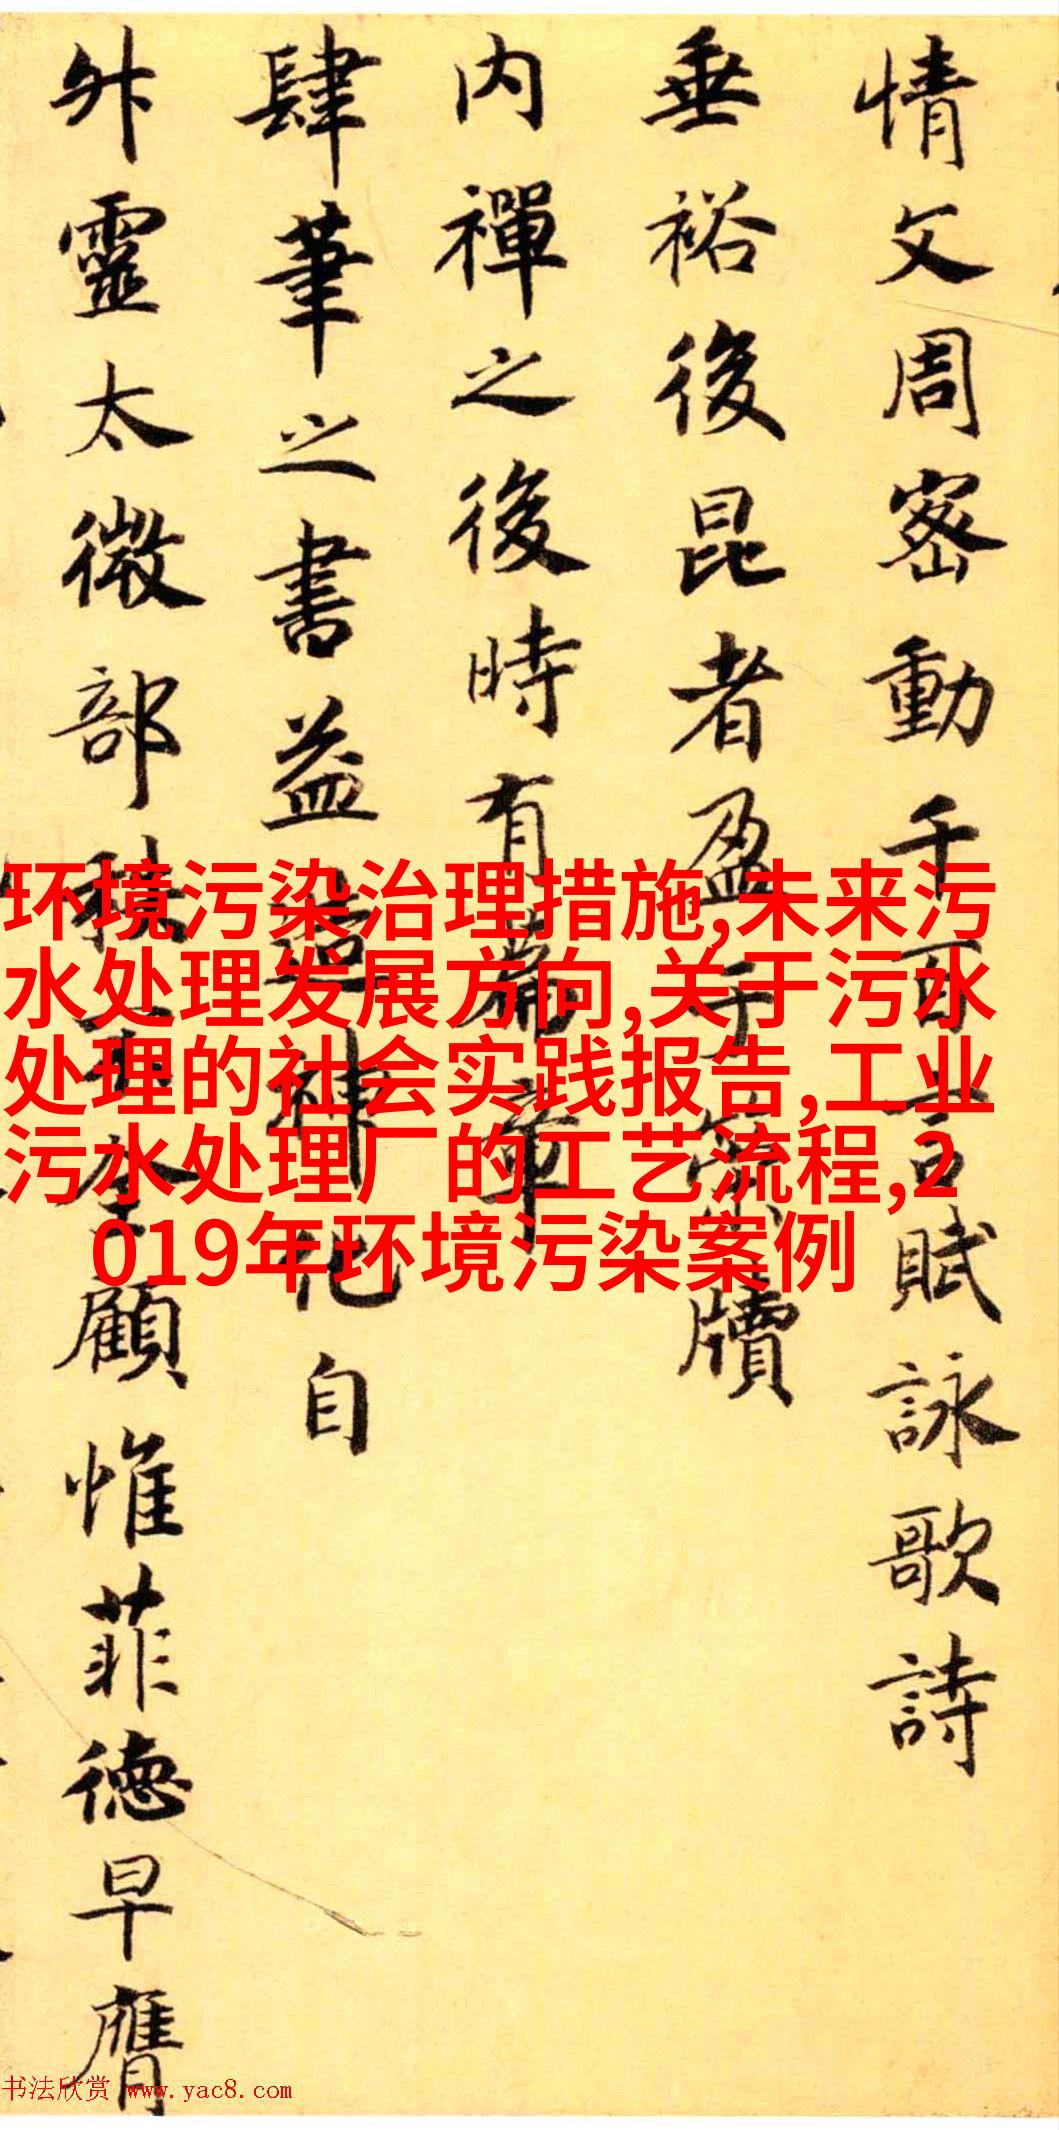 情文周密動千百言賦詠歌詩
垂裕後昆者盈于牘
内禪之後時有篇章
肆筆之書益造神化自
靈太微部顧惟菲德早膺
环境污染治理措施,未来污
水处理发展方向,关于污水
处理的社会实践报告,工业
污水处理厂的工艺流程,2
019年环境污染案例
书法欣赏 www.yac8.com